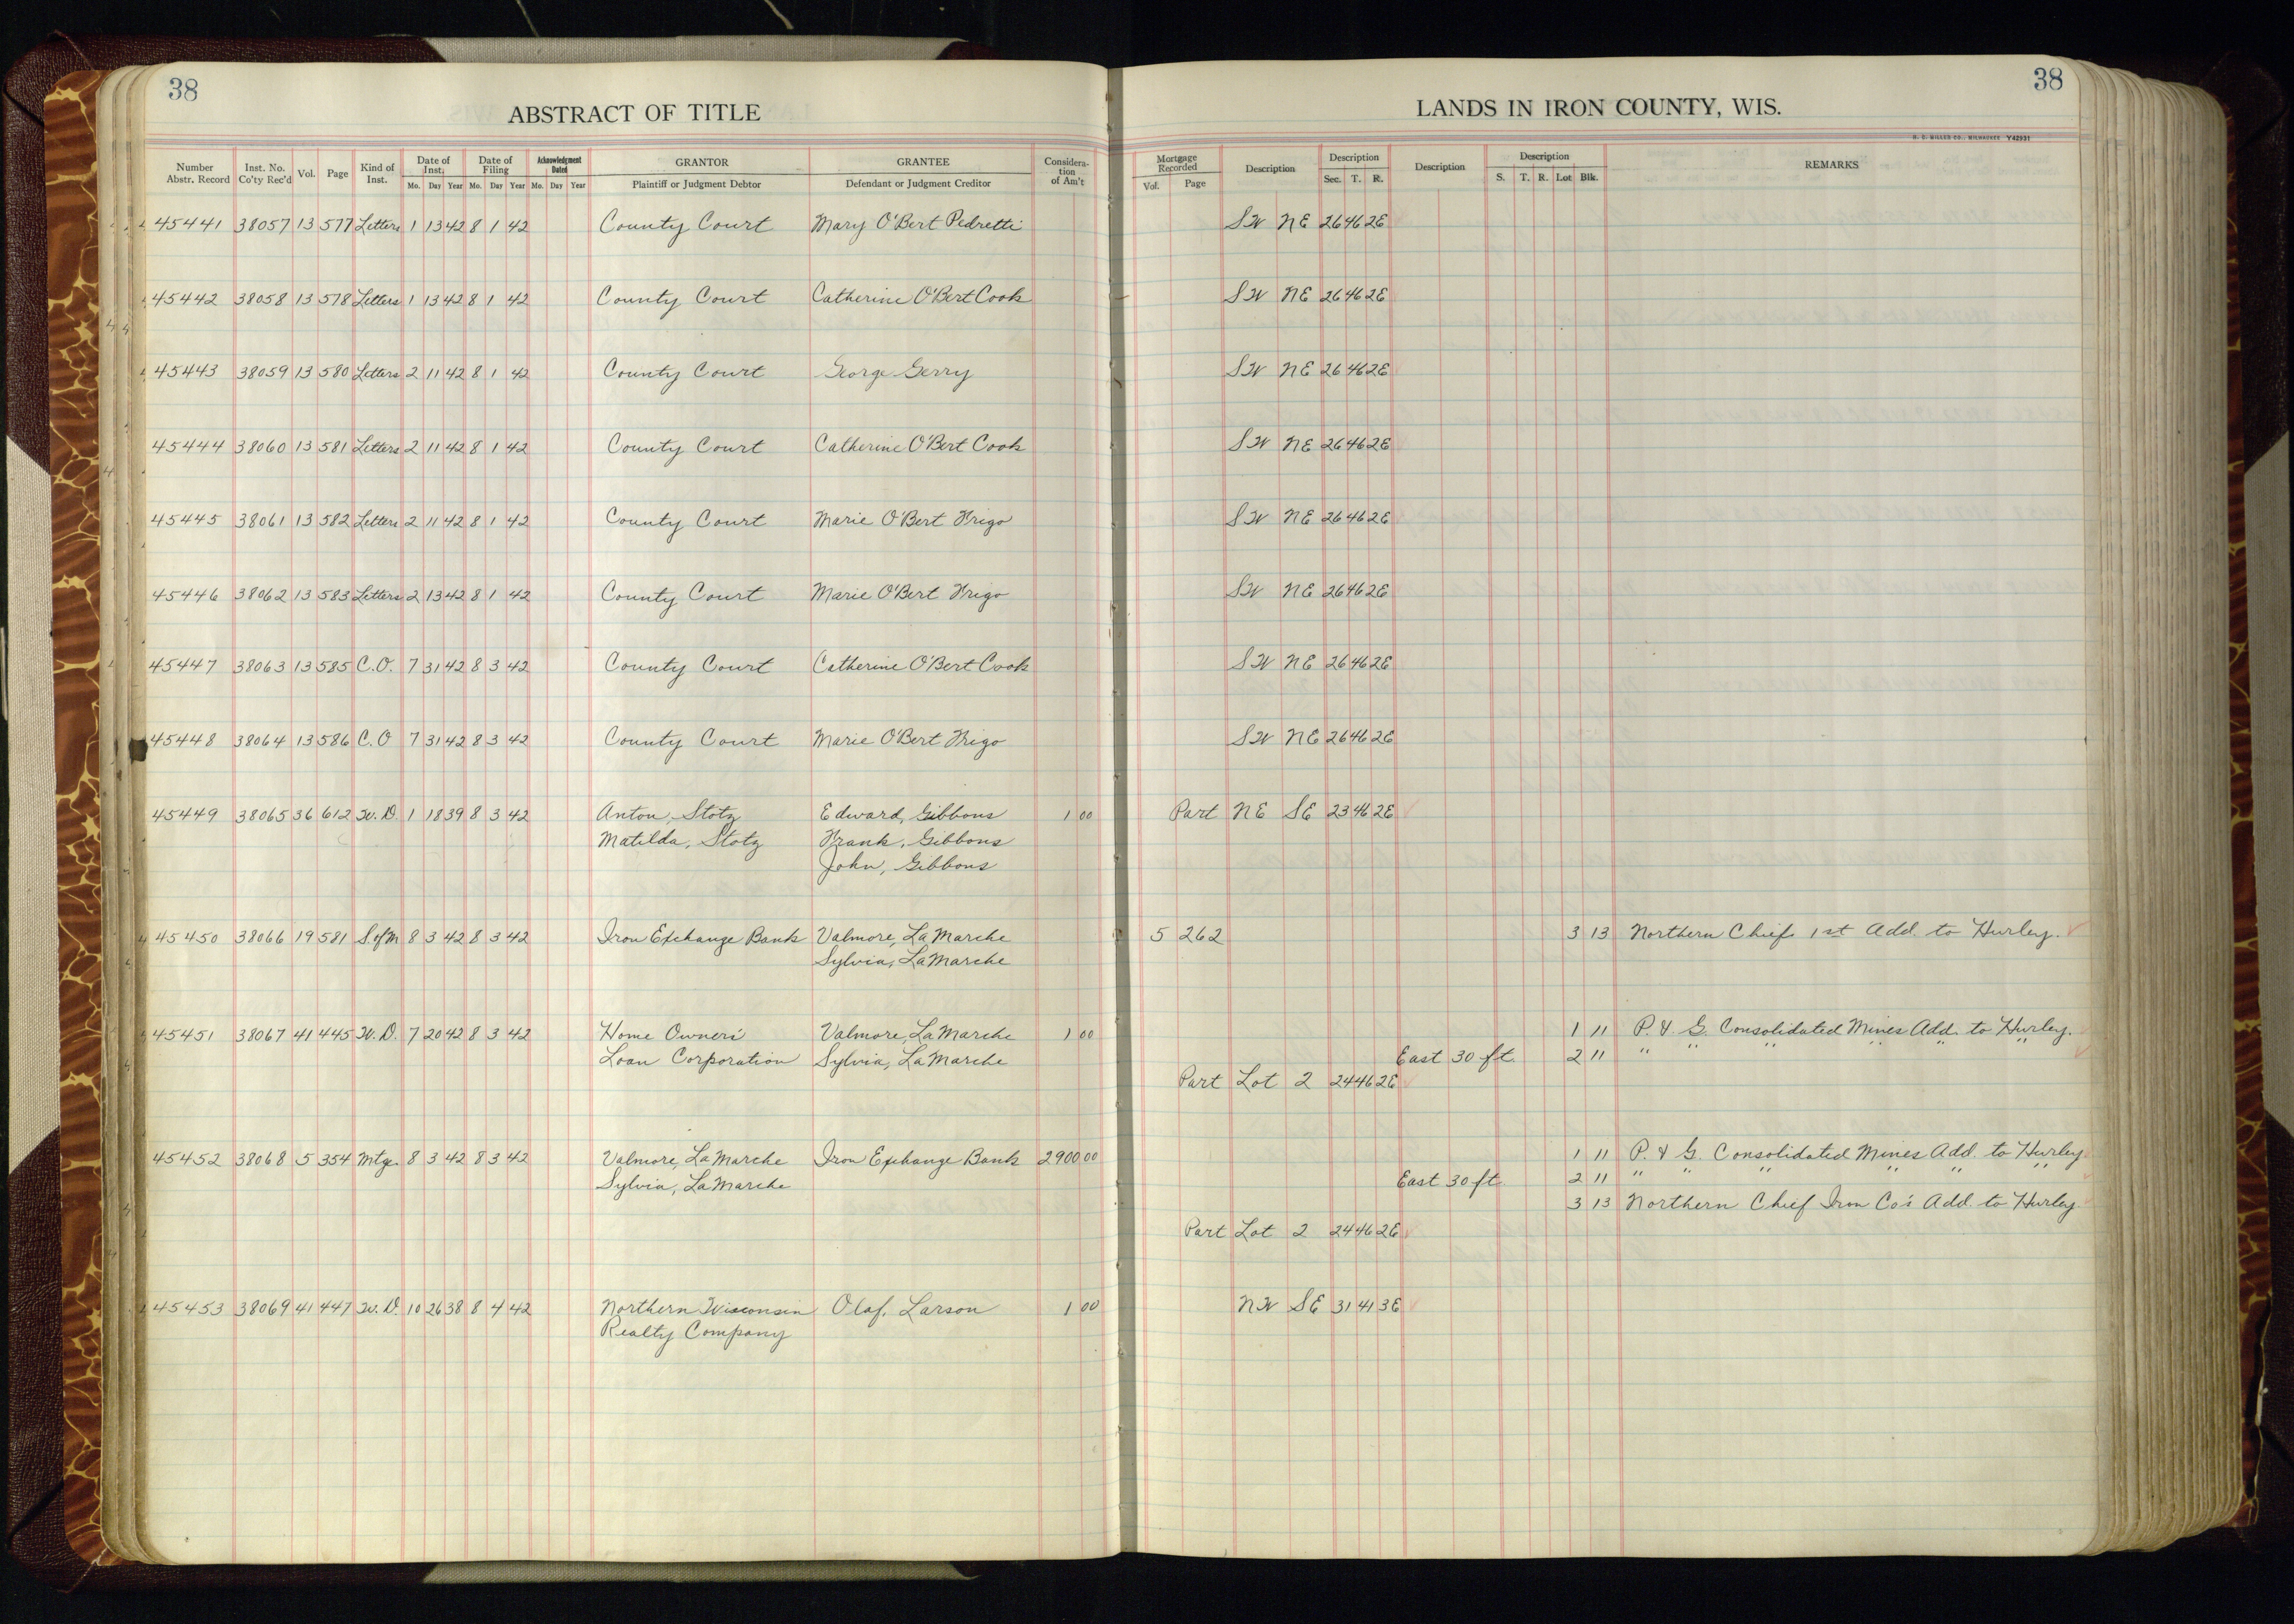 38
ABSTRACT OF TITLE
Number Abstr. Record Inst. No. Co'ty Rec'd Vol. Page Kind of Inst. Date of Inst. Mo. Day Year Date of Filing Mo. Day Year Acknowledgment Dated Mo. Day Year GRANTOR Plaintiff or Judgment Debtor GRANTEE Defendant or Judgment Creditor Considera-tion of Am't
45441 38057 13 577 Letters 1 13 42 8 1 42 County Court Mary O'Bert Pedretti
45442 38058 13 578 Letters 1 13 42 8 1 42 County Court Catherine O'Bert Cook
45443 38059 13 580 Letters 2 11 42 8 1 42 County Court George Gerry
45444 38060 13 581 Letters 2 11 42 8 1 42 County Court Catherine O'Bert Cook
45445 38061 13 582 Letters 2 11 42 8 1 42 County Court Marie O'Bert Frigo
45446 38062 13 583 Letters 2 13 42 8 1 42 County Court Marie O'Bert Frigo
45447 38063 13 585 C.O. 7 31 42 8 3 42 County Court Catherine O'Bert Cook
45448 38064 13 586 C.O 7 31 42 8 3 42 County Court Marie O'Bert Frigo
45449 38065 36 612 W.D. 1 18 39 8 3 42 Anton, Stotz Edward, Gibbons 1 00
Matilda, Stotz Frank, Gibbons
John, Gibbons
45450 38066 19 581 S.ofM 8 3 42 8 3 42 Iron Exchange Bank Valmore, LaMarche
Sylvia, LaMarche
45451 38067 41 445 W.D. 7 20 42 8 3 42 Home Owners' Valmore, LaMarche 1 00
Loan Corporation Sylvia, LaMarche
45452 38068 5 354 Mtge. 8 3 42 8 3 42 Valmore, LaMarche Iron Exchange Bank 2900 00
Sylvia, LaMarche
45453 38069 41 447 W.D. 10 26 38 8 4 42 Northern Wisconsin Olaf, Larson 1 00
Realty Company
38
LANDS IN IRON COUNTY, WIS.
H. C. MILLER CO., MILWAUKEE Y42931
Mortgage Recorded Vol. Page Description Description Sec. T. R. Description Description S. T. R. Lot Blk. REMARKS
SW NE 26 46 2E
SW NE 26 46 2E
SW NE 26 46 2E
SW NE 26 46 2E
SW NE 26 46 2E
SW NE 26 46 2E
SW NE 26 46 2E
SW NE 26 46 2E
Part NE SE 23 46 2E
5 262 3 13 Northern Chief 1st Add. to Hurley.
1 11 P. & G. Consolidated Mines Add. to Hurley.
East 30 ft. 2 11 " " " " " "
Part Lot 2 24 46 2E
1 11 P. & G. Consolidated Mines Add. to Hurley
East 30 ft. 2 11 " " " " " "
3 13 Northern Chief Iron Co's Add. to Hurley.
Part Lot 2 24 46 2E
NW SE 31 41 3E